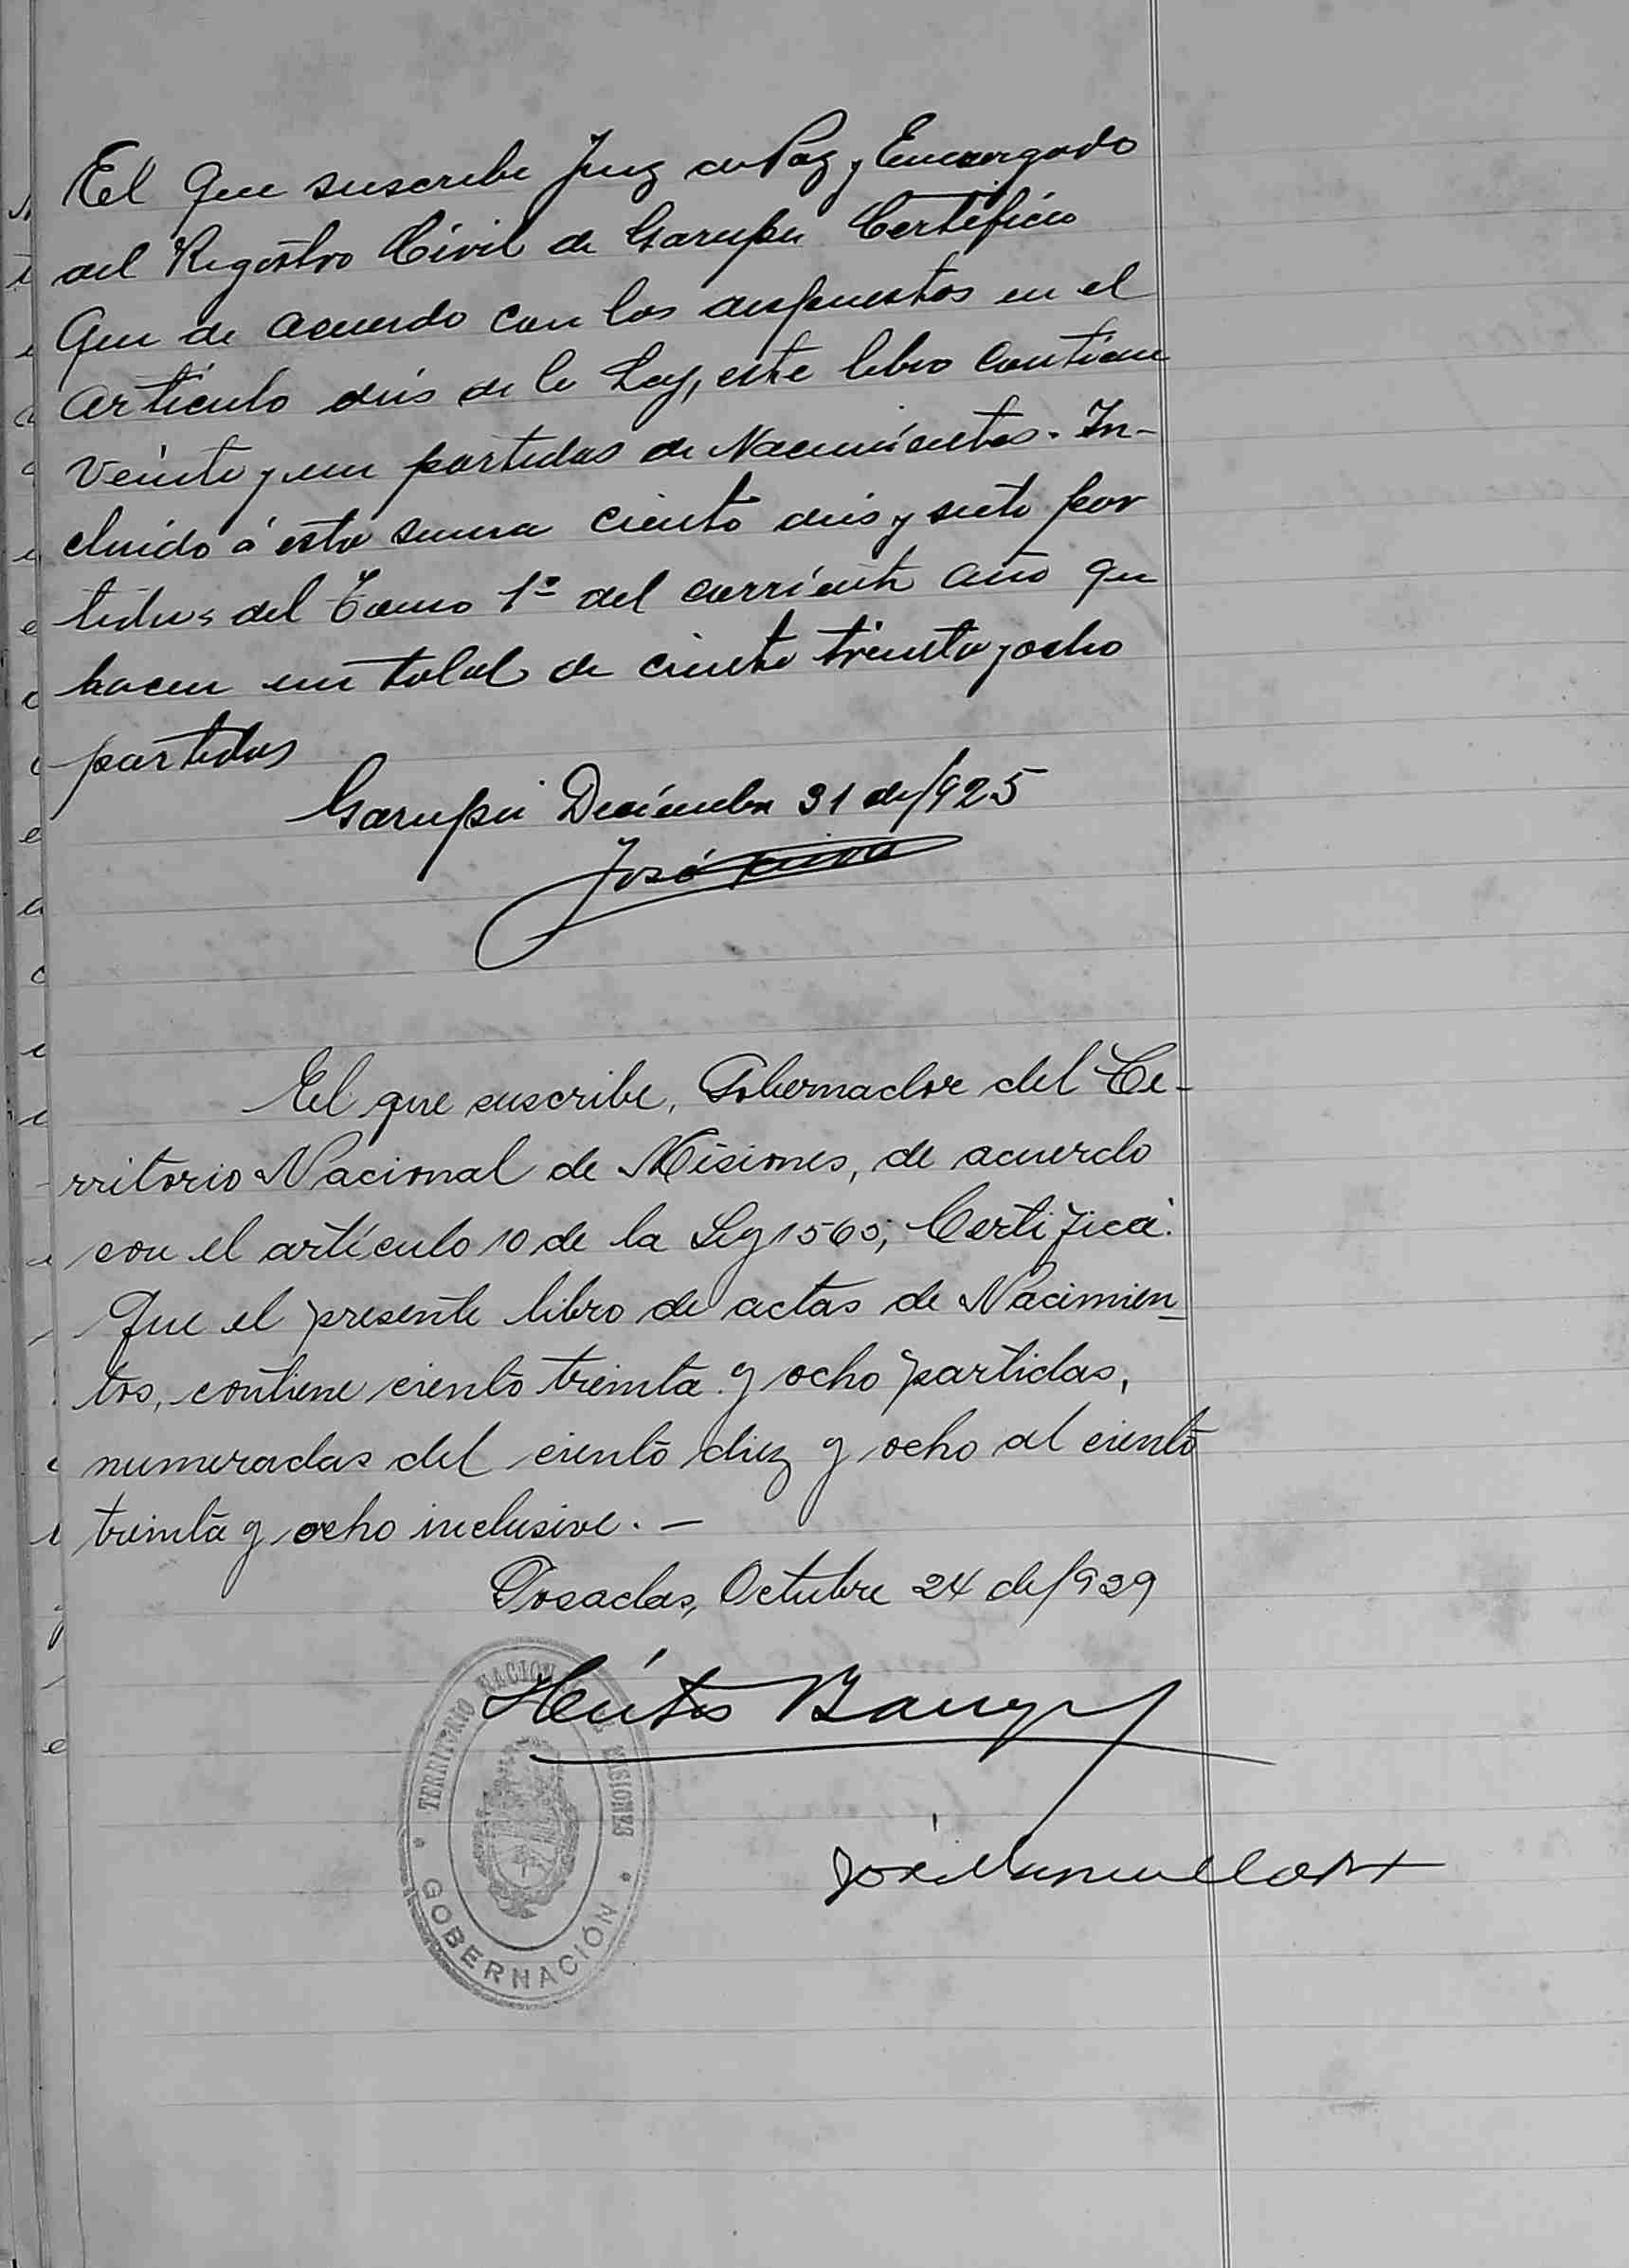 El Que suscribe Juez de Paz y Encargado
del Registro Civil de Garupa Certifico
Que de acuerdo con los dispuestos en el
Articulo diis de la Ley, este libro contiene
Veinte y un partidas de Nacimientos. In-
cluido á esta suma ciento diis y siete par
tidas del Tomo 1º del corriente año que
hacen un total de ciento treinta y ocho
partidas
Garupá Diciembre 31 de/925
José
El que suscribe, Gobernador del Te-
rritorio Nacional de Misiones, de acuerdo
con el artículo 10 de la Ley 1565; Certifica:
Que el presente libro de actas de Nacimien-
tos, contiene ciento treinta y ocho partidas,
numeradas del ciento diez y ocho al ciento
treinta y ocho inclusive. —
Posadas, Octubre 24 de/929
TERRITORIO NACIONAL DE MISIONES
GOBERNACIÓN